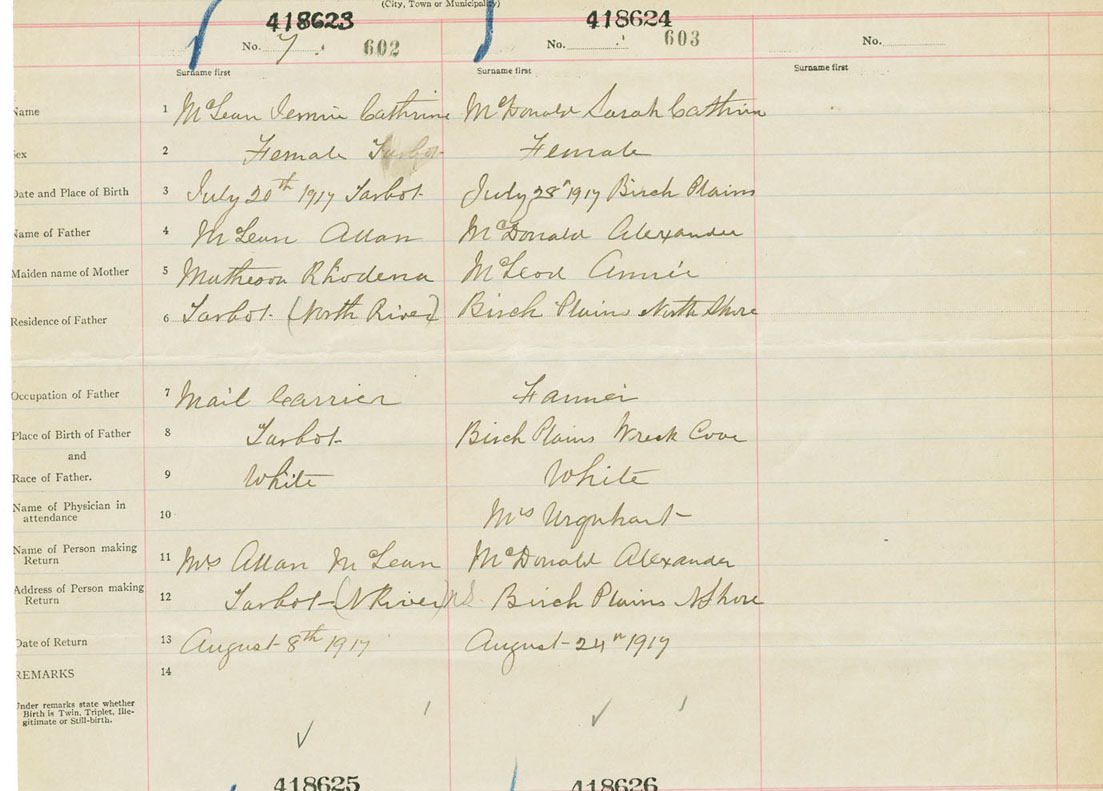 (City, Town or Municipality)
418623 418624
No. 7 602 No. 603 No.
Surname first Surname first Surname first
Name 1 McLean Jennie Cathrine McDonald Sarah Cathrin
Sex 2 Female Tarbot Female
Date and Place of Birth 3 July 20th 1917 Tarbot July 28th 1917 Birch Plains
Name of Father 4 McLean Allan McDonald Alexander
Maiden name of Mother 5 Matheson Rhodena McLeod Annie
Residence of Father 6 Tarbot (North River) Birch Plains North Shore
Occupation of Father 7 Mail Carrier Farmer
Place of Birth of Father 8 Tarbot Birch Plains Wreck Cove
and
Race of Father. 9 White White
Name of Physician in
attendance 10 Mrs Urquhart
Name of Person making
Return 11 Mrs Allan McLean McDonald Alexander
Address of Person making
Return 12 Tarbot (N River) N.S. Birch Plains N Shore
Date of Return 13 August 8th 1917 August 24th 1917
REMARKS 14
Under remarks state whether
Birth is Twin, Triplet, Ille-
gitimate or Still-birth.
418625 418626